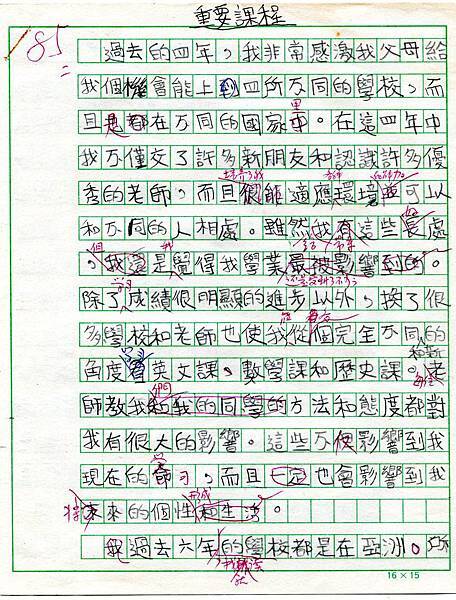 重要課程
85
過去的四年，我非常感激我父母給
我個機會能上到四所不同的學校，而
里
且都在不同的國家。在這四年中
我不僅交了許多新朋友和認識許多優
培養了我
秀的老師，而且很能適應環境並可以
和不同的人相處。雖然我有這些長處
但 我
，我還是覺得我學業最被影響到的。
學習
除了成績很明顯的進步以外，換了很
多學校和老師也使我從個完全不同的
角度看英文課、數學課和歷史課。老
師教我和我的同學的方法和態度都對
們
我有很大的影響。這些不僅影響到我
現在的學習，而且一定也會影響到我
形成
將來的個性和生活。
我過去六年的學校都是在亞洲。
16×15